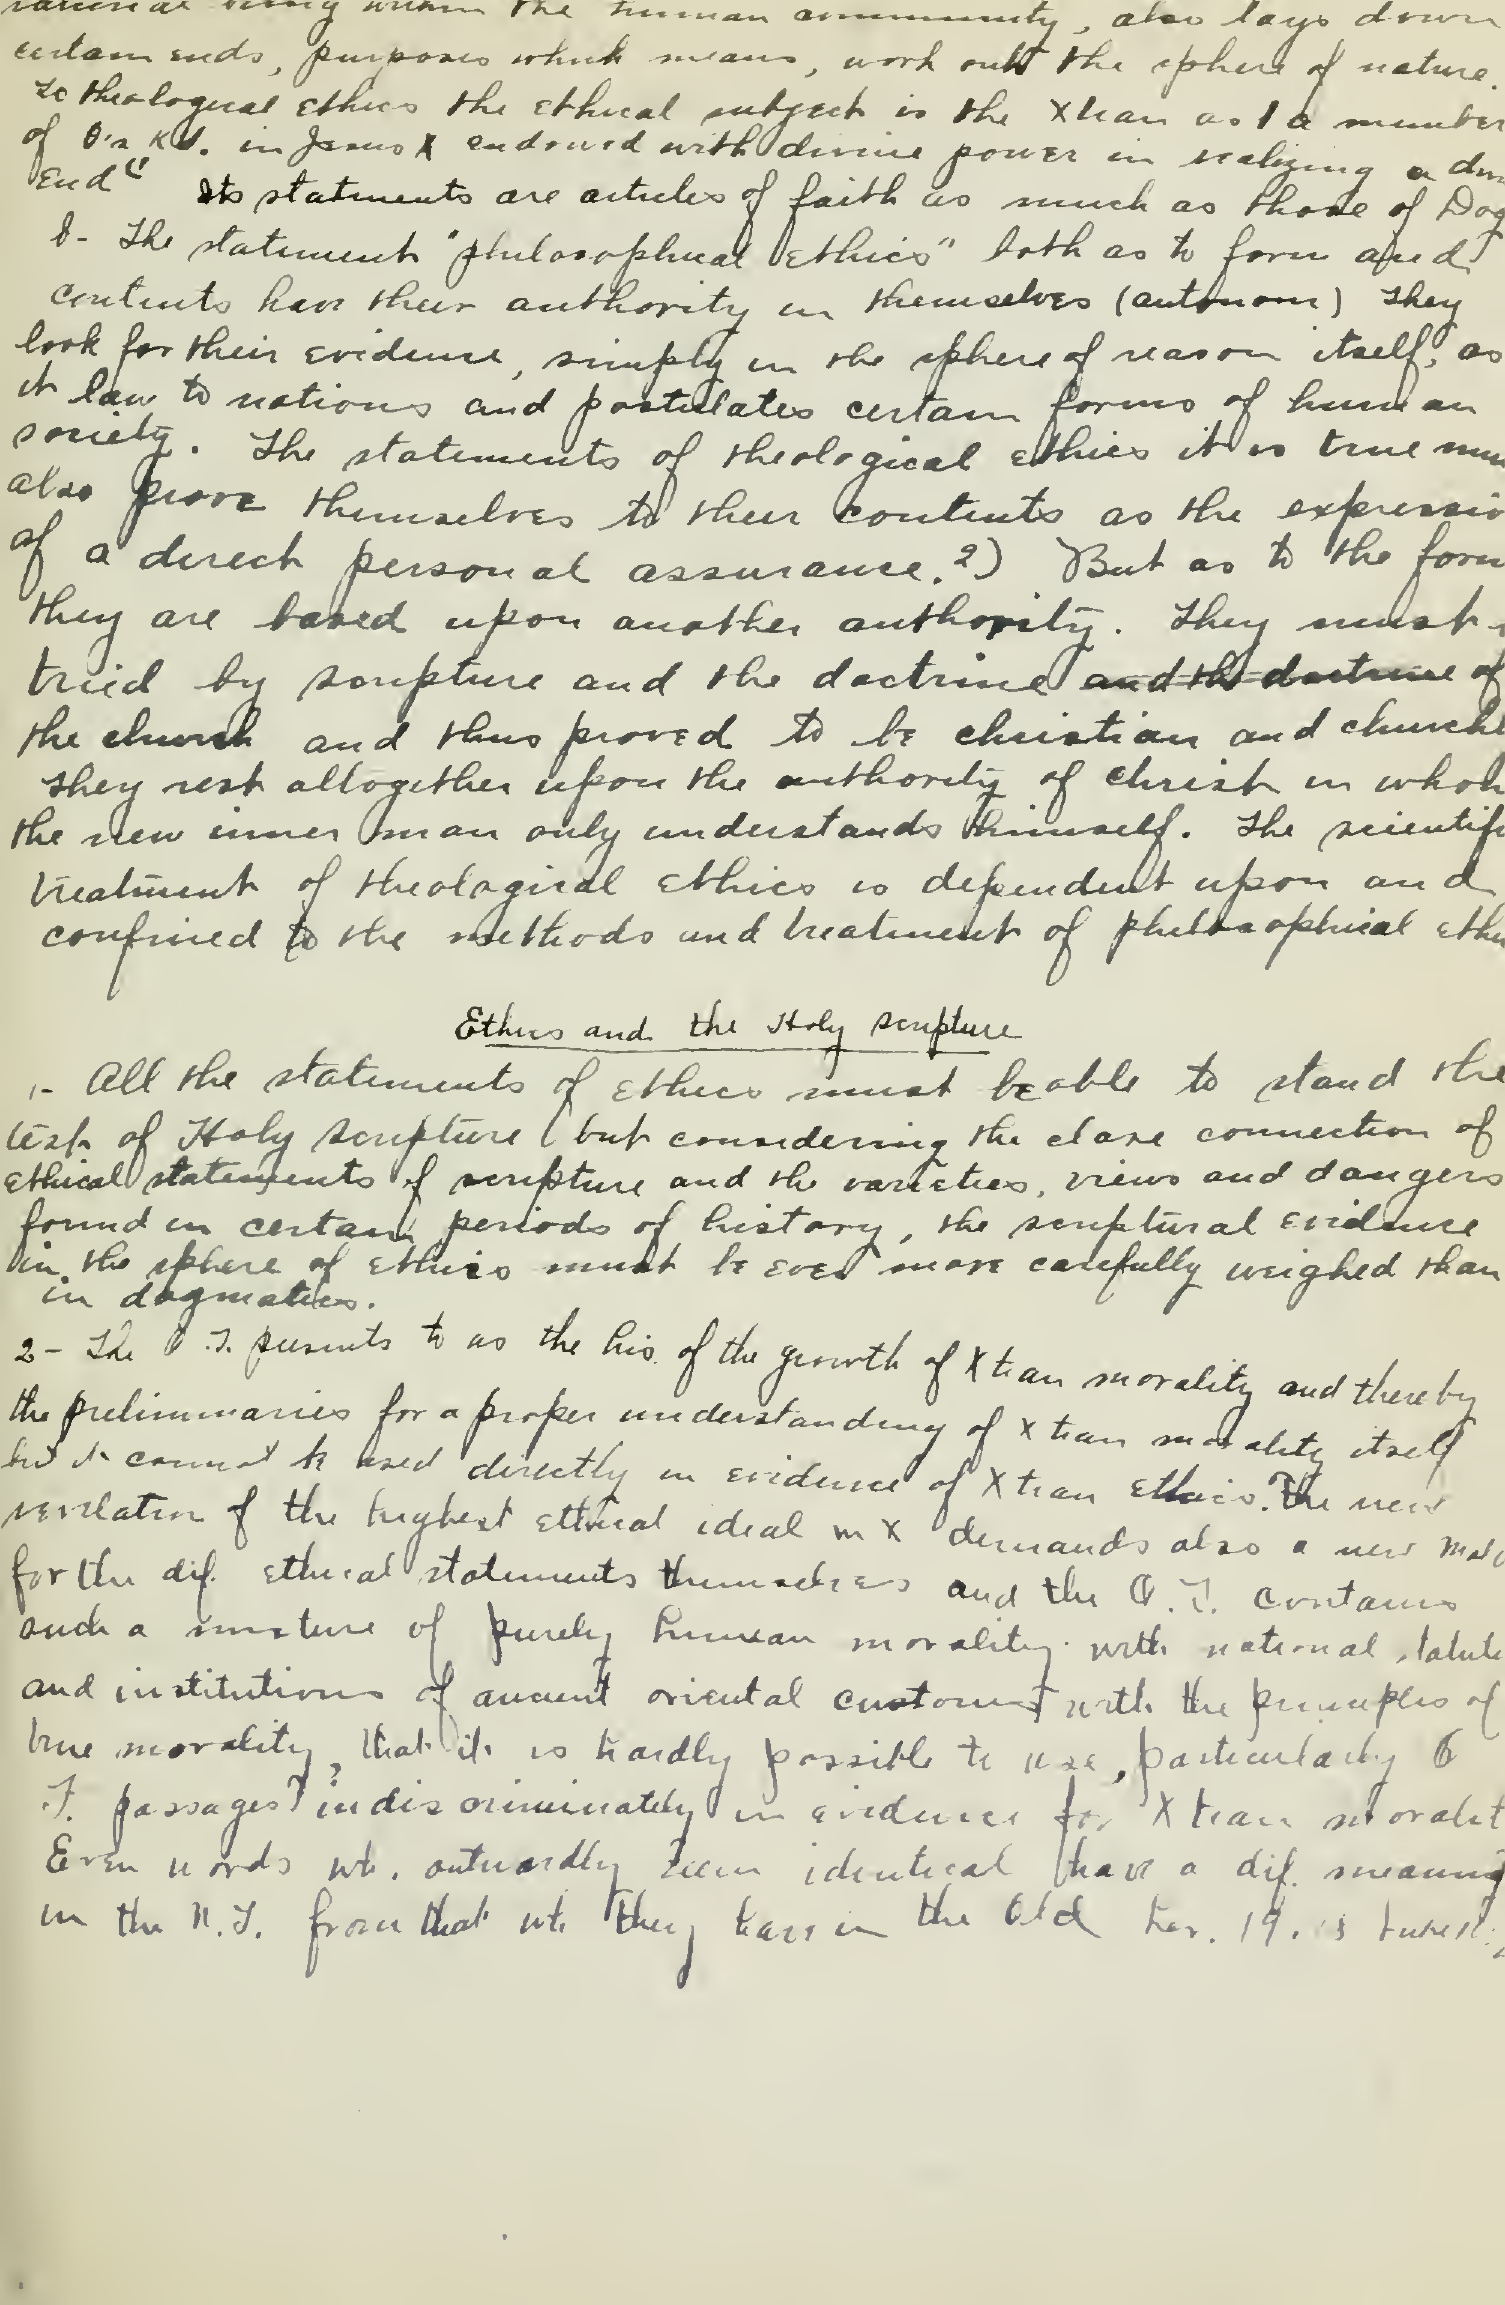 rational being within the human community, also lays down
certain ends, purposes which means, work out the sphere of nature.
To theological ethics the ethical subject is the Xtian as a member
of in Jesus X endowed with divine power in realizing a
End" Its statements are articles of faith as much as those of Dog
b- The statement "philosophical Ethics" both as to form and
contents have their authority in themselves (autonom) They
look for their evidence, simply in the sphere of reason itself, as
it law to nations and postulates certain forms of human
society. The statements of theological ethics it is true
also prove themselves to their contents as the expressio
of a direct personal assurance.2) But as to the form
they are based upon another authority. They must
tried by scripture and the doctrine and the doctrine of
the church and thus proved to be christian and churchl
They rest altogether upon the authority of Christ in whom
the new inner man only understands himself. The scientifi
treatment of theological Ethics is dependent upon and
confined to the methods and treatment of philosophical ethi
Ethics and the Holy scripture
1- All the statements of ethics must be able to stand the
test of Holy Scripture but considering the close connection of
ethical statements of scripture and the varieties, views and dangers
found in certain periods of history, the scriptural evidence
in the sphere of ethics must be even more carefully weighed than
in dogmatics.
2- The O.T. presents to us the his. of the growth of Xtian morality and thereby
the preliminaries for a proper understanding of xtian morality itself
but it cannot be used directly in evidence of Xtian Ethics. The new
revelation of the highest ethical ideal in X demands also a new
for the dif. ethical statements themselves and the O.T. contains
such a mixture of purely human morality with national statute
and institutions of ancient oriental customs with the principles of
true morality, that it is hardly possible to use, particularly O
T. passages indiscriminately in evidence for Xtian moralit
Even words wh. outwardly seem identical have a dif. meaning
in the N.T. from that wh they have in the Old 19.